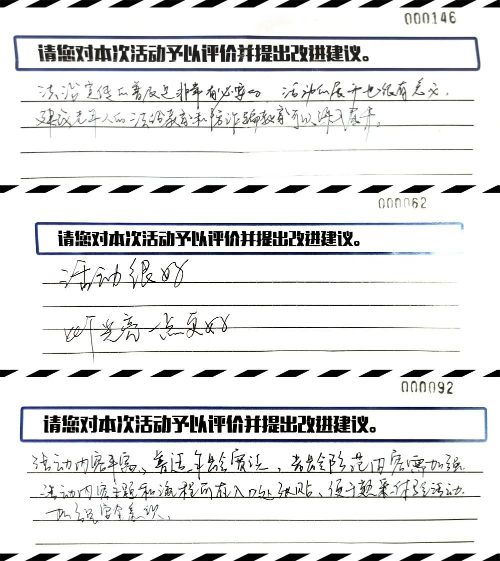 000146
请您对本次活动予以评价并提出改进建议。
法治宣传的普及是非常有必要的，活动的展开也很有意义，
建议老年人的法治教育和防诈骗教育可以深入展开。
000062
请您对本次活动予以评价并提出改进建议。
活动很好
灯光亮一点更好
000092
请您对本次活动予以评价并提出改进建议。
活动内容丰富、普适年龄宽泛，老龄阶范内容需加强
活动内容主题和流程可在入口处张贴、便于题来体验活动
加强安全意识。